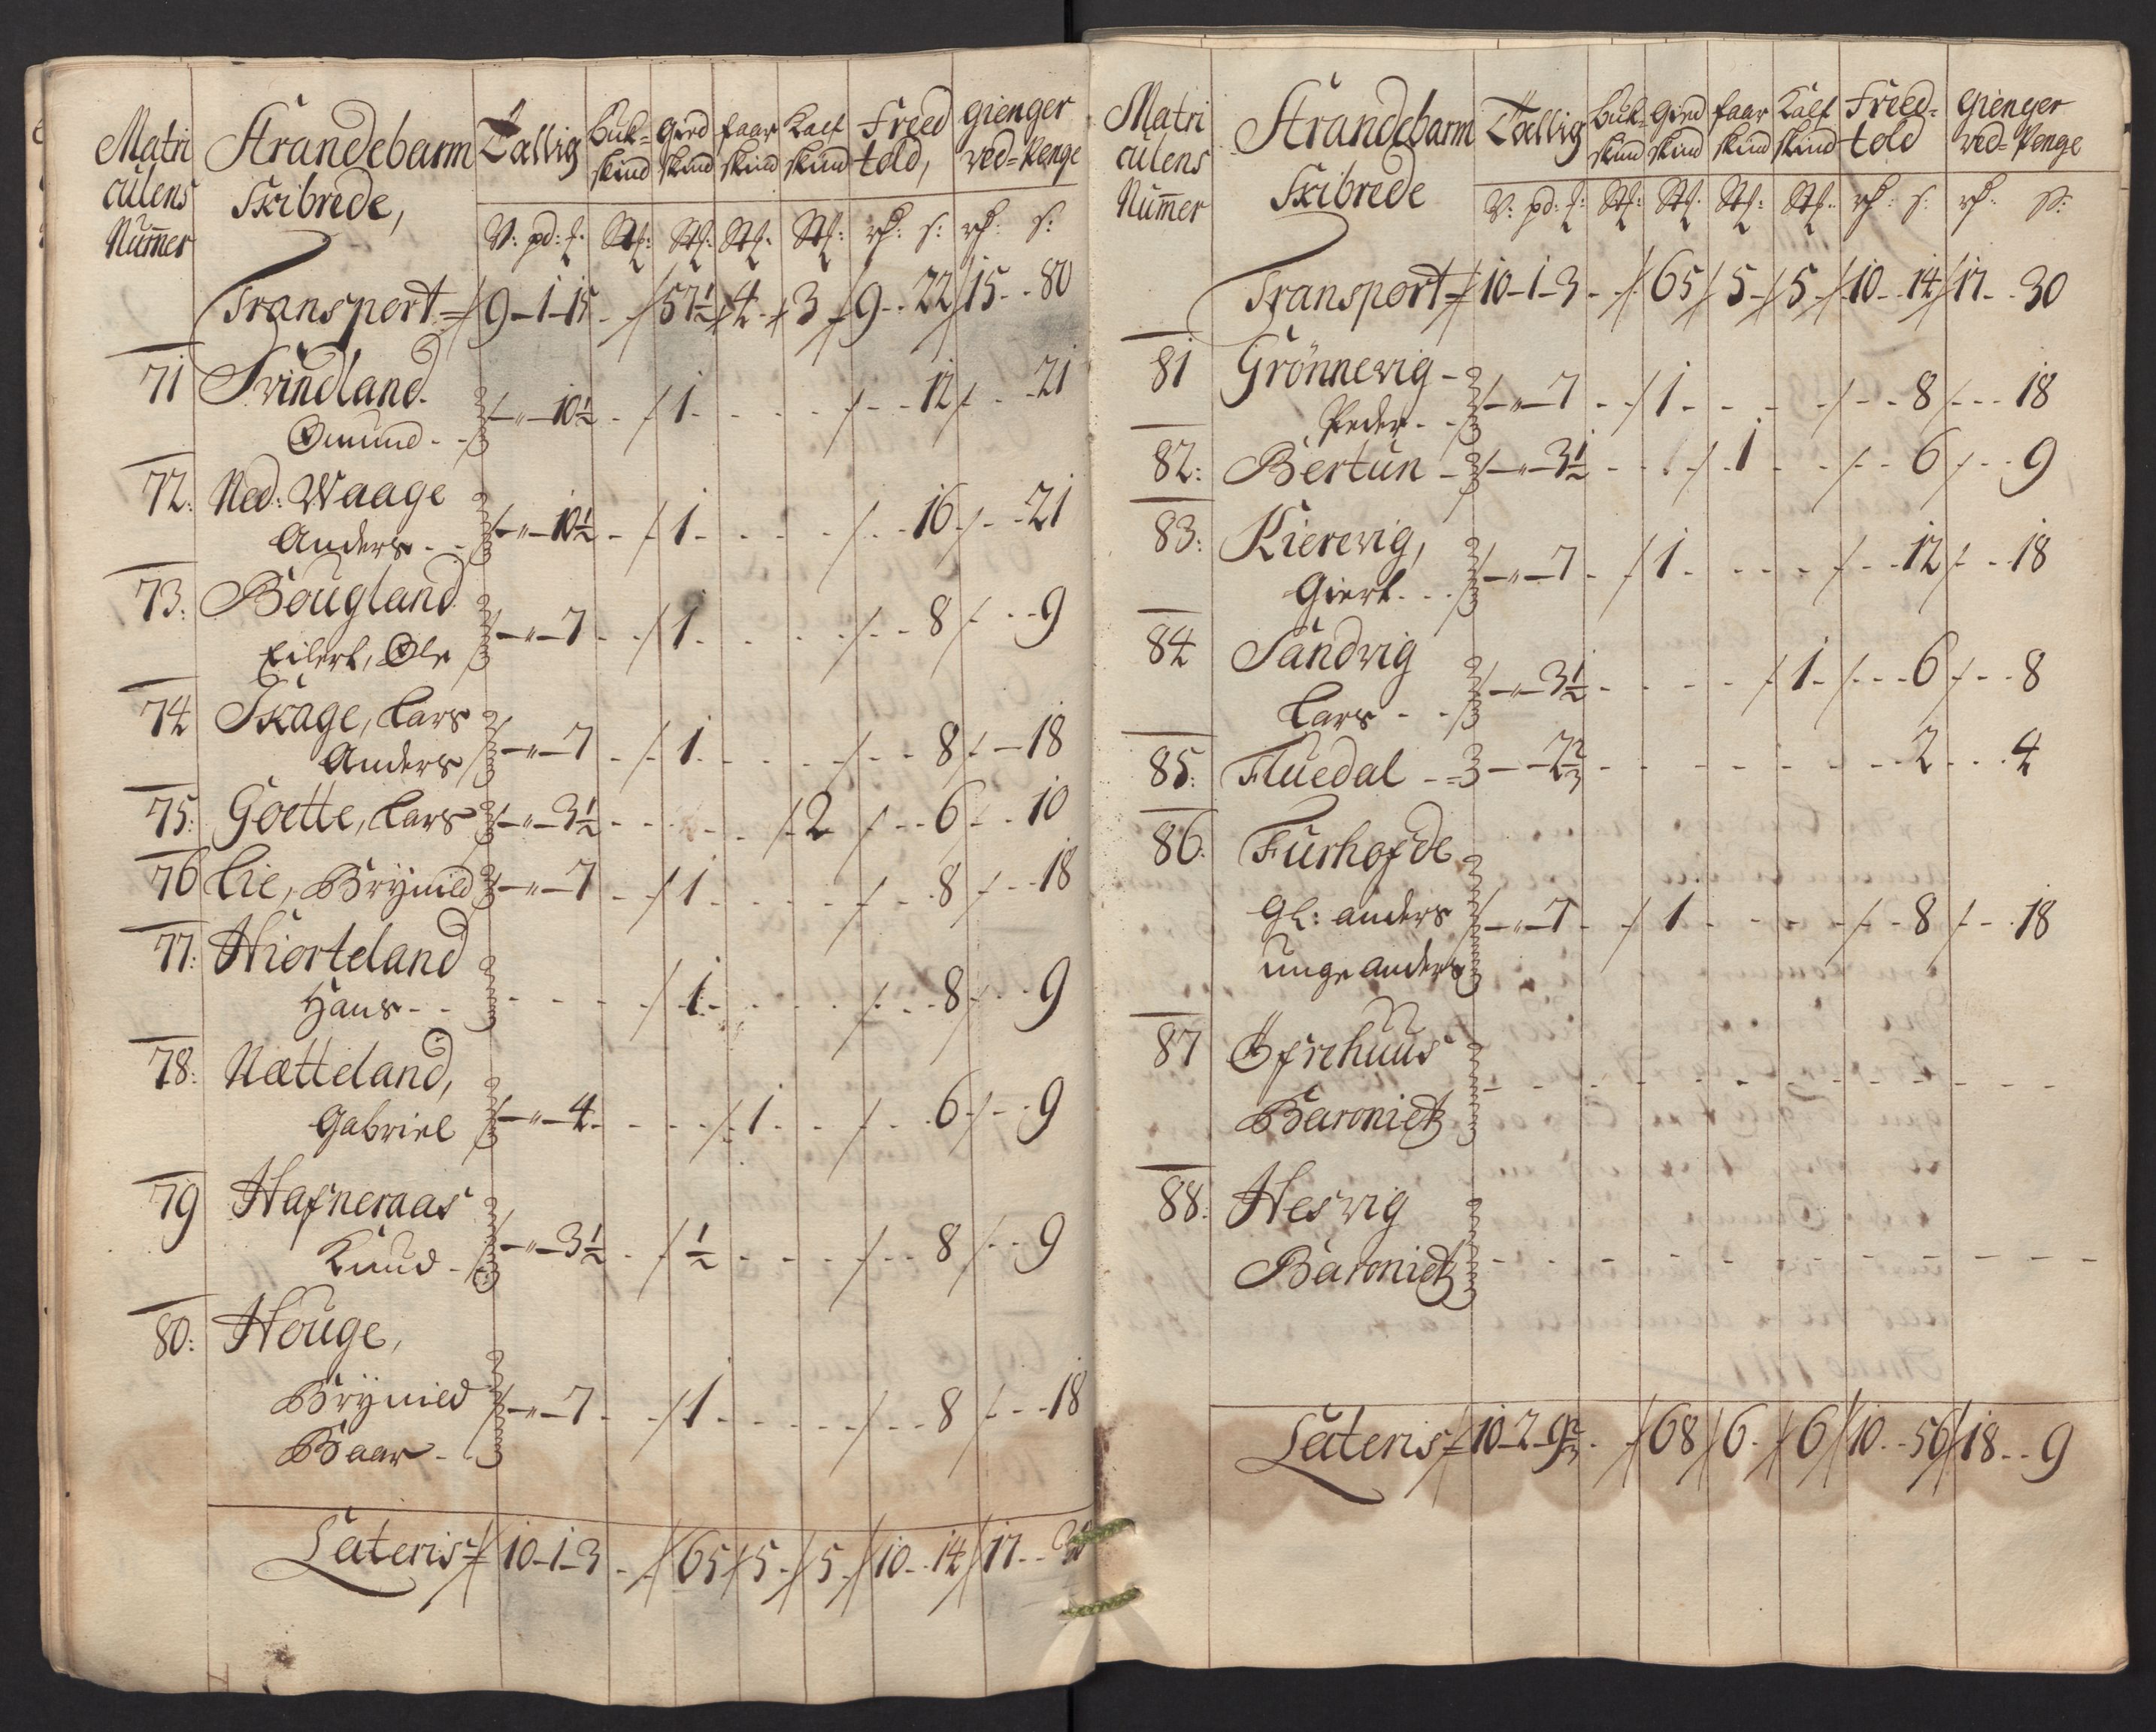 Matri
culens
Nummer
Strandebarm
Skibrede,
Tallig
Buk-
skind
Gied
skind
faar
skind
Kalf
skind
Freed
told,
gienger
ved-Penge
V: pd: f. Stf: Stf: Stf. Stf: rf: s: rf: s:
Transport 9-1-15 57½ 4 3 9 22 15 80
71 Svindland
Omund 10½ 1 12 21
72. Ned: Waage
Anders 10½ 1 16 21
73. Bougland
Eilert, Ole 7 1 8 9
74 Skage, Lars
Anders 7 1 8 18
75: Goette, Lars 3½ 2 6 10
76 Lie, Brÿnild 7 1 8 18
77: Hiorteland
Hans 1 8 9
78: Nætteland,
Gabriel 4 1 6 9
79 Hafneraas
Knud 3½ ½ 8 9
80: Houge,
Brÿnild 7 1 8 18
Baar
Lateris 10-1-3 65 5 5 10 14 17
Matri
culens
Nummer
Strandebarm
Skibrede
Tallig
Buk-
skind
Gied
skind
faar
skind
Kalf
skind
Freed-
told
Gienger
ved-Penge
V: pd: f: Stf: Stf. Stf: Stf. rf: s: rf: s:
Transport 10-1-3 65 5 5 10 14 17 30
81 Grönnevig
Peder 7 1 8 18
82: Bertun 3½ 1 6 9
83: Kierevig,
Giert 7 1 12 18
84 Sandvig
Lars 3½ 1 6 8
85: Fluedal 2⅔ 2 4
86. Furhofde
Gl: anders 7 1 8 18
unge anders
87 Öfrehuus
Baroniet
88: Hesvig
Baroniet
Lateris 10-2-9⅔ 68 6 6 10 56 18 9